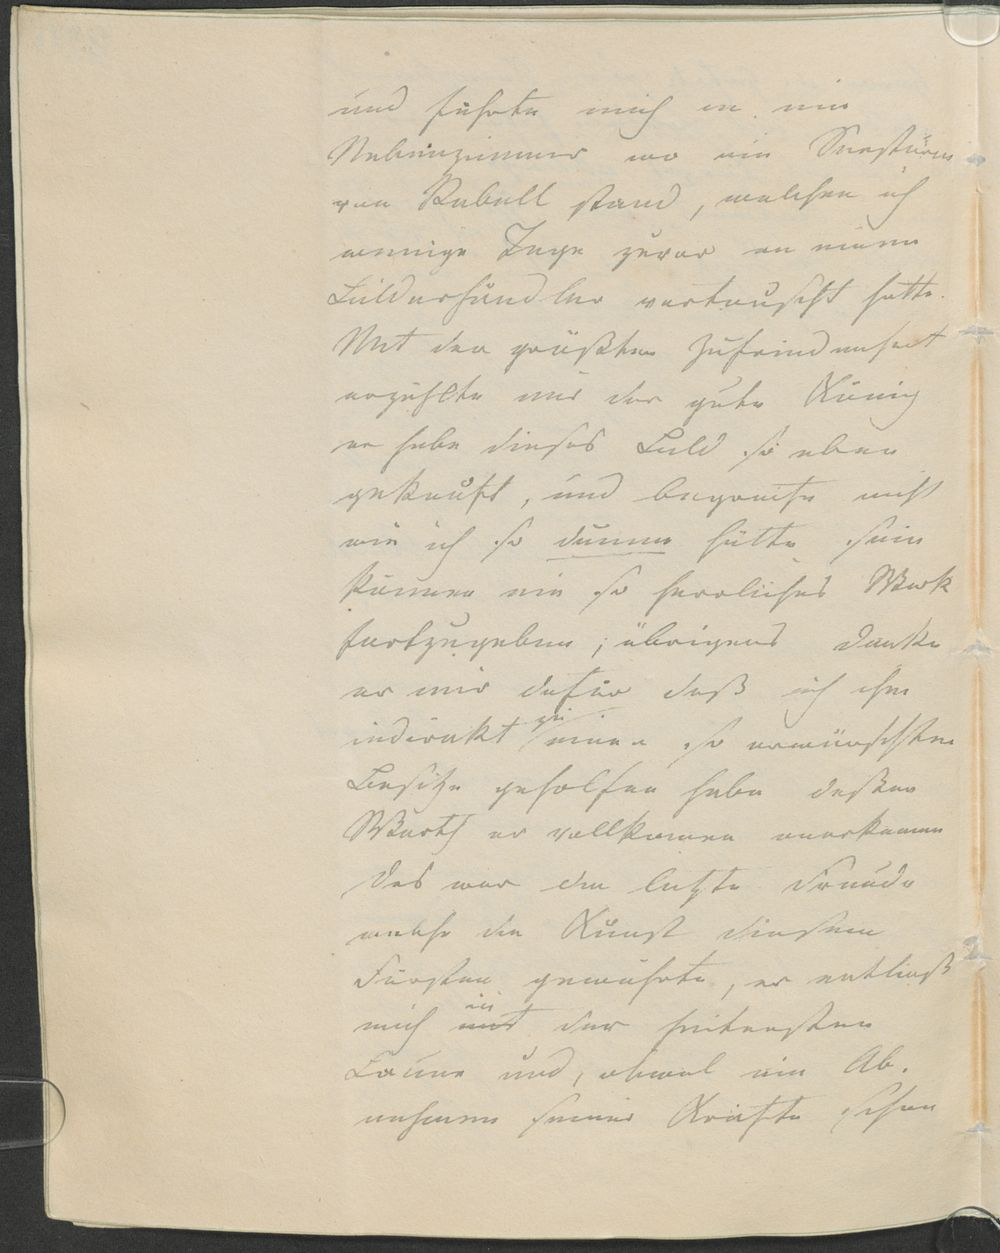 und führte mich in ein
Nebenzimmer wo ein Seesturm
von Rebell stand, welchen ich
wenige Tage zuvor an einen
Bilderhändler vertauscht hatte.
Mit der größten Zufriedenheit
erzählte mir der gute König
er habe dieses Bild so eben
gekauft, und begreife nicht
wie ich so dumm hätte sein
können ein so herrliches Werk
fortzugeben; übrigens danke
er mir dafür daß ich ihm
indirekt zu einem so erwünschten
Besitze geholfen habe deßen
Werth er vollkommen anerkenne
Das war die letzte Freude
welche die Kunst diesem
Fürsten gewährte, er entließ
mich in der heitersten
Laune und, obwol ein Ab-
nehmen seiner Kräfte schon